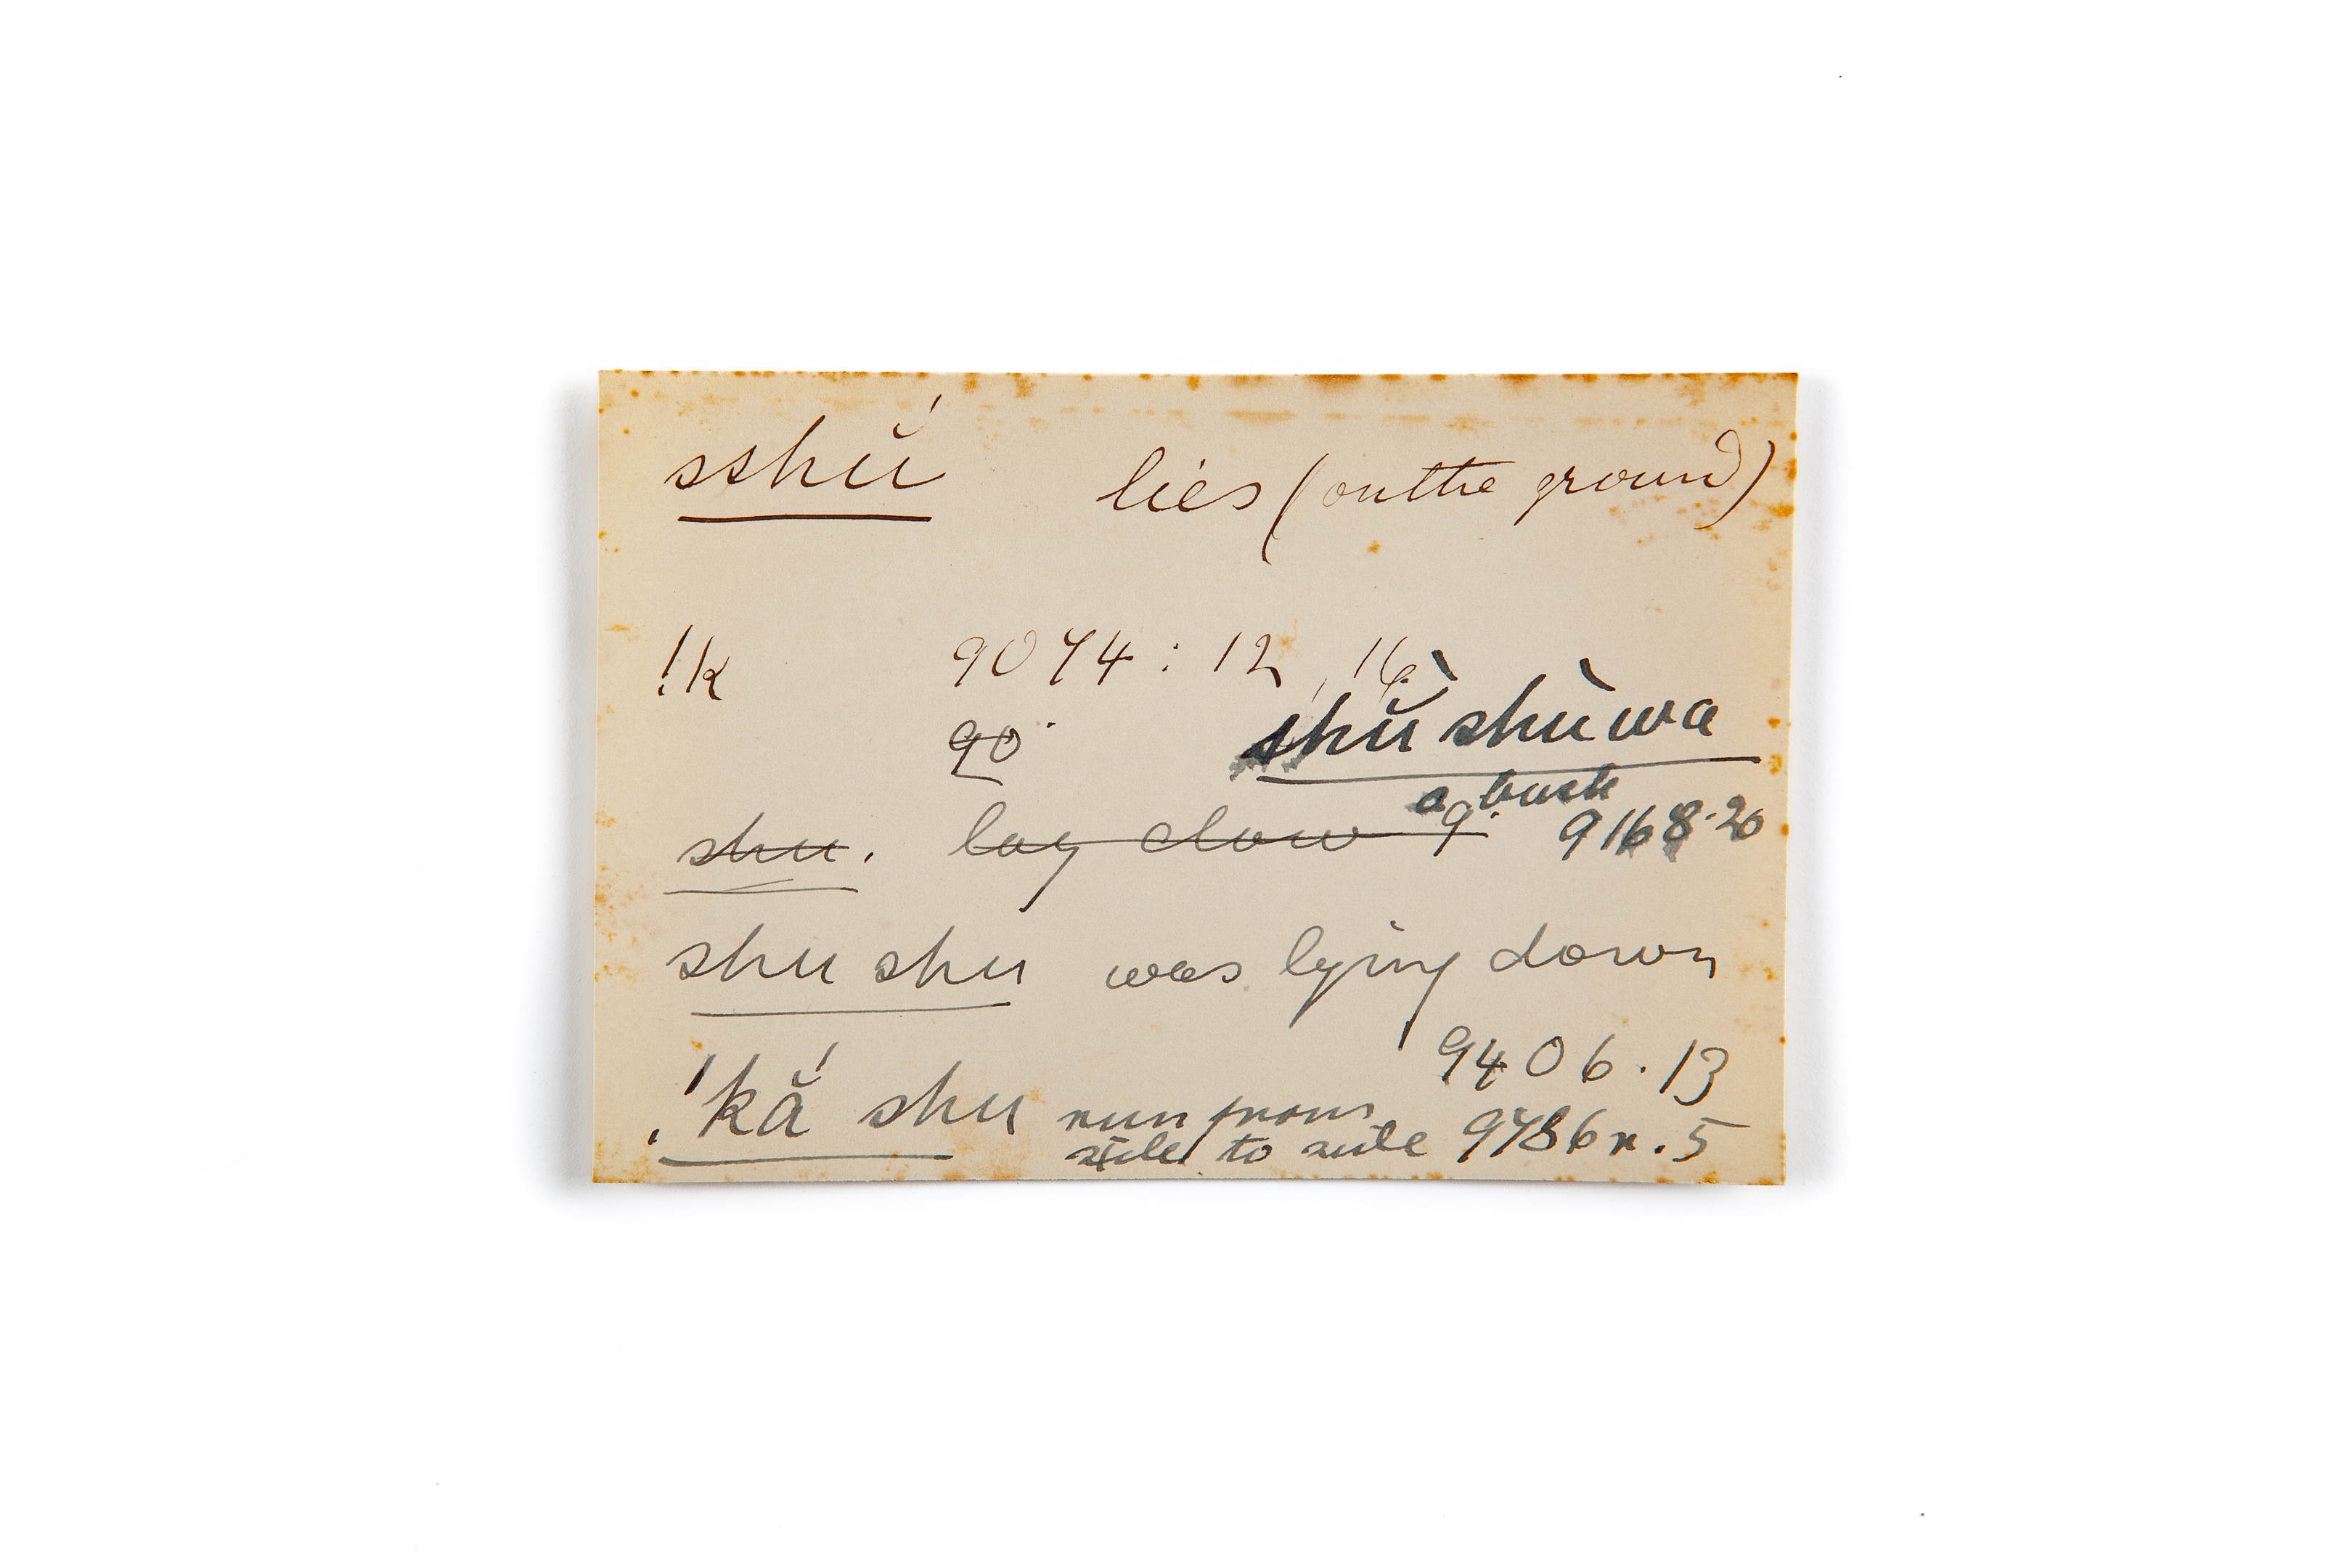 sshŭ́ lies (on the ground)
!k 9074 : 12, 16.
90 shŭ̀ shù wa
a bush
shu. lay dow 9. 9168.20
shu shu was lying down
9406.13
!kắ shu run from
side to side 9786 r. 5